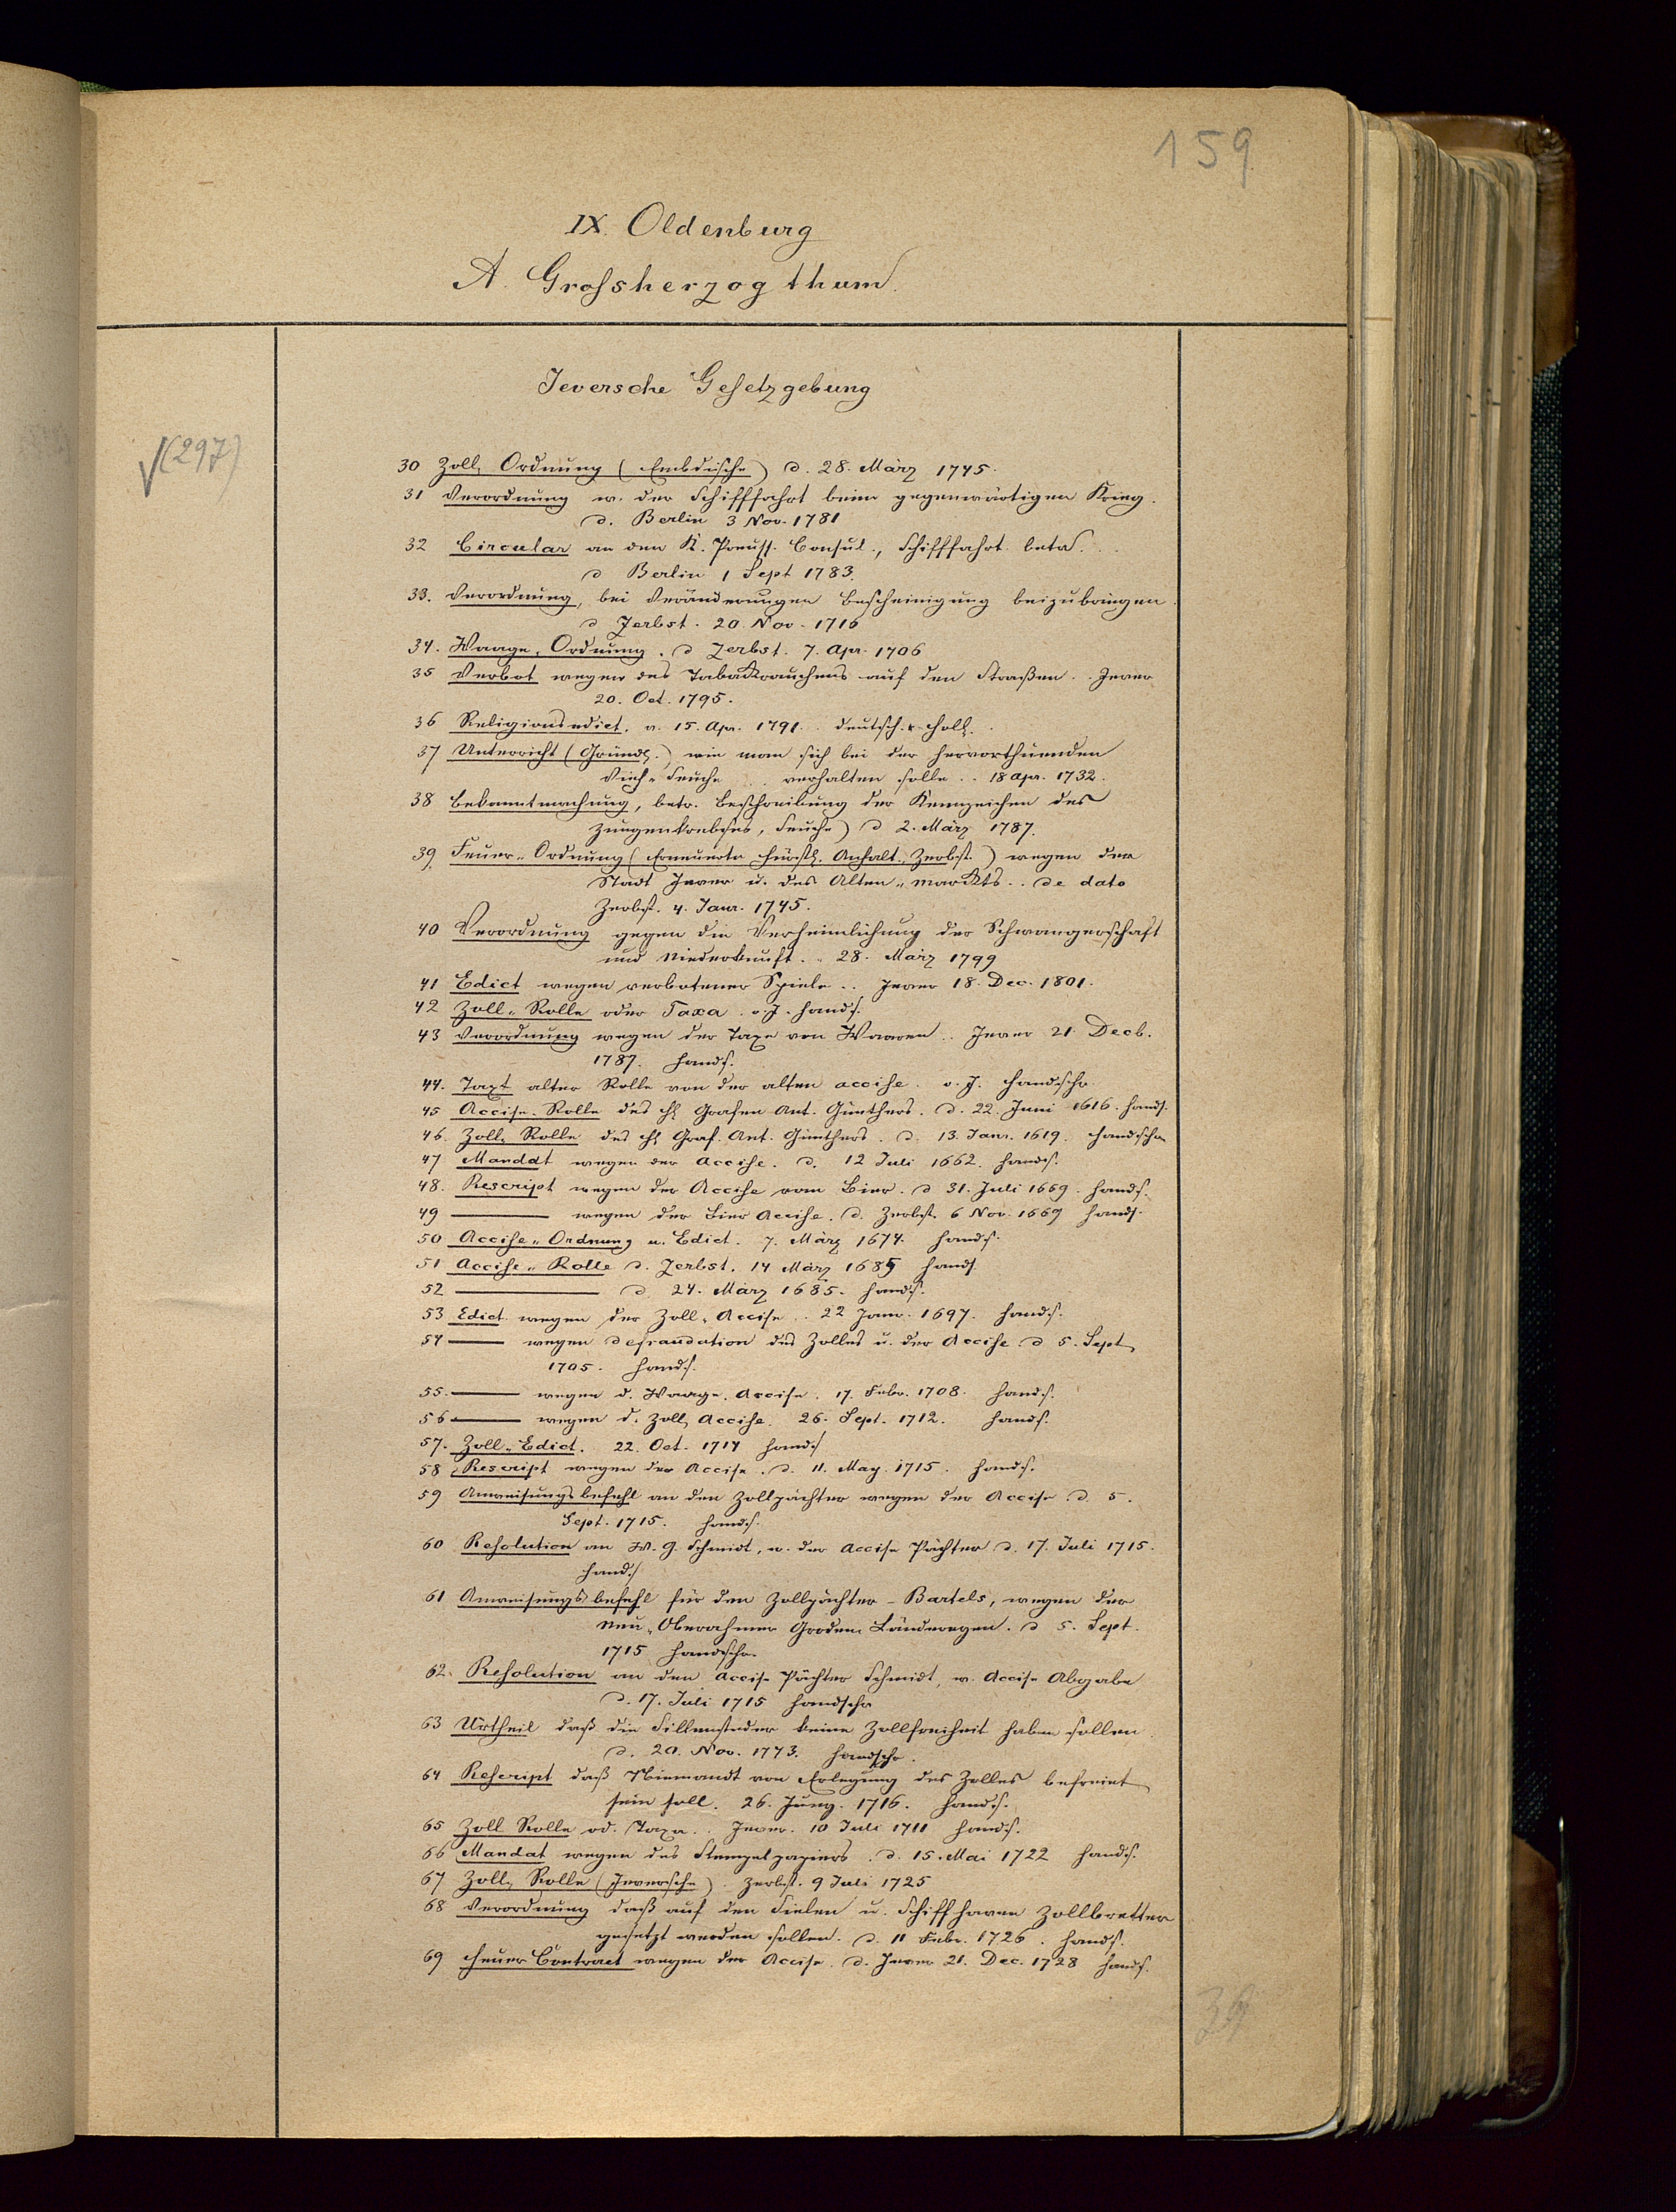 159
IX. Oldenburg
A. Grossherzogthum.
Jeversche Gesetzgebung
√(297)
30 Zoll-Ordnung (Embdische) d. 28. März 1745.
31 Verordnung w. der Schifffahrt beim gegenwärtigen Krieg.
d. Berlin 3 Nov. 1781
32 Circular an den K. Preuss. Consul., Schifffahrt betr. . .
d Berlin 1 Sept 1783.
33. Verordnung, bei Veränderungen Bescheinigung beizubringen.
d Zerbst. 20. Nov. 1716
34. Waage-Ordnung. d Zerbst. 7. Apr. 1706
35 Verbot wegen des Tabakrauchens auf den Straßen . . Jever
20. Oct. 1795.
36 Religionsedict. v. 15. Apr. 1791. . deutsch. & holl. .
37 Unterricht (Gründl.) wie man sich bei der hervorthuenden
Vieh-Seuche . . verhalten solle . . 18 Apr. 1732.
38 Bekanntmachung, betr. Beschreibung der Kennzeichen des
Zungenkrebses, Seuche) d 2. März 1787.
39. Feuer-Ordnung (Erneuerte Fürstl. Anhalt. Zerbst.) wegen der
Stadt Jever u. des Alten-Markts . . de dato
Zerbst. 4. Janr. 1745.
40 Verordnung gegen die Verheimlichung der Schwangerschaft
und Niederkunft. . 28. März 1799
41 Edict wegen verbotener Spiele . . Jever 18. Dec. 1801.
42 Zoll-Rolle oder Taxa . o. J. hands.
43 Verordnung wegen der Taxe von Waaren . . Jever 21. Decb.
1787. hands.
44. Taxt alter Rolle von der alten accise. o. J. handschr.
45 Accise-Rolle des H Grafen Ant. Günthers. d. 22. Juni 1616. hands.
46. Zoll-Rolle des H Graf. Ant. Günthers. d. 13. Janr. 1619. handschr
47 Mandat wegen der Accise. d. 12 Juli 1662. hands.
48. Rescript wegen der Accise vom Bier. d 31. Juli 1669. hands.
49 ——— wegen der Bier Accise. d. Zerbst. 6 Nov. 1669 hands.
50 Accise-Ordnung u. Edict. 7. März 1674. hands.
51 Accise-Rolle d. Zerbst. 14 März 1685 hands.
52 ——— d. 24. März 1685. hands.
53 Edict wegen der Zoll-Accise . . 22 Janr. 1697. hands.
54 ——— wegen defraudation des Zolles u. der Accise d 5. Sept
1705. hands.
55. ——— wegen d. Waage-Accise. 17. Febr. 1708. hands.
56 ——— wegen d. Zoll Accise. 26. Sept. 1712. hands.
57. Zoll-Edict. 22. Oct. 1714 hands
58 Rescript wegen der Accise. d. 11. May. 1715. hands.
59 Anweisungsbefehl an den Zollpächter wegen der Accise d. 5.
Sept. 1715. hands.
60 Resolution an W. G. Schmidt, w. der Accise Pächter d. 17. Juli 1715.
hands
61 Anweisungsbefehl für den Zollpächter - Bartels, wegen der
Neu-Oberahmer Groden Ländereyen. d 5. Sept.
1715 handschr.
62. Resolution an den Accise Pächter Schmidt, w. Accise Abgabe
d. 17. Juli 1715 handschr
63 Urtheil daß die Sillensteder keine Zollfreiheit haben sollen
d. 20. Nov. 1773. handschr.
64 Rescript daß Niemandt von Erlegung des Zolles befreiet
sein soll. 26. Juny. 1716. hands.
65 Zoll Rolle od. Taxa . . Jever. 10 Juli 1711 hands.
66 Mandat wegen des Stempelpapiers. d. 15. Mai 1722 hands.
67 Zoll-Rolle (Jeversche). Zerbst. 9 Juli 1725
68 Verordnung daß auf den Sielen u. Schiffhaven Zollbretter
gesetzt werden sollen. d. 11 Febr. 1726. hands.
69 Heuer Contract wegen der Accise. d. Jever 21. Dec. 1728 hands.